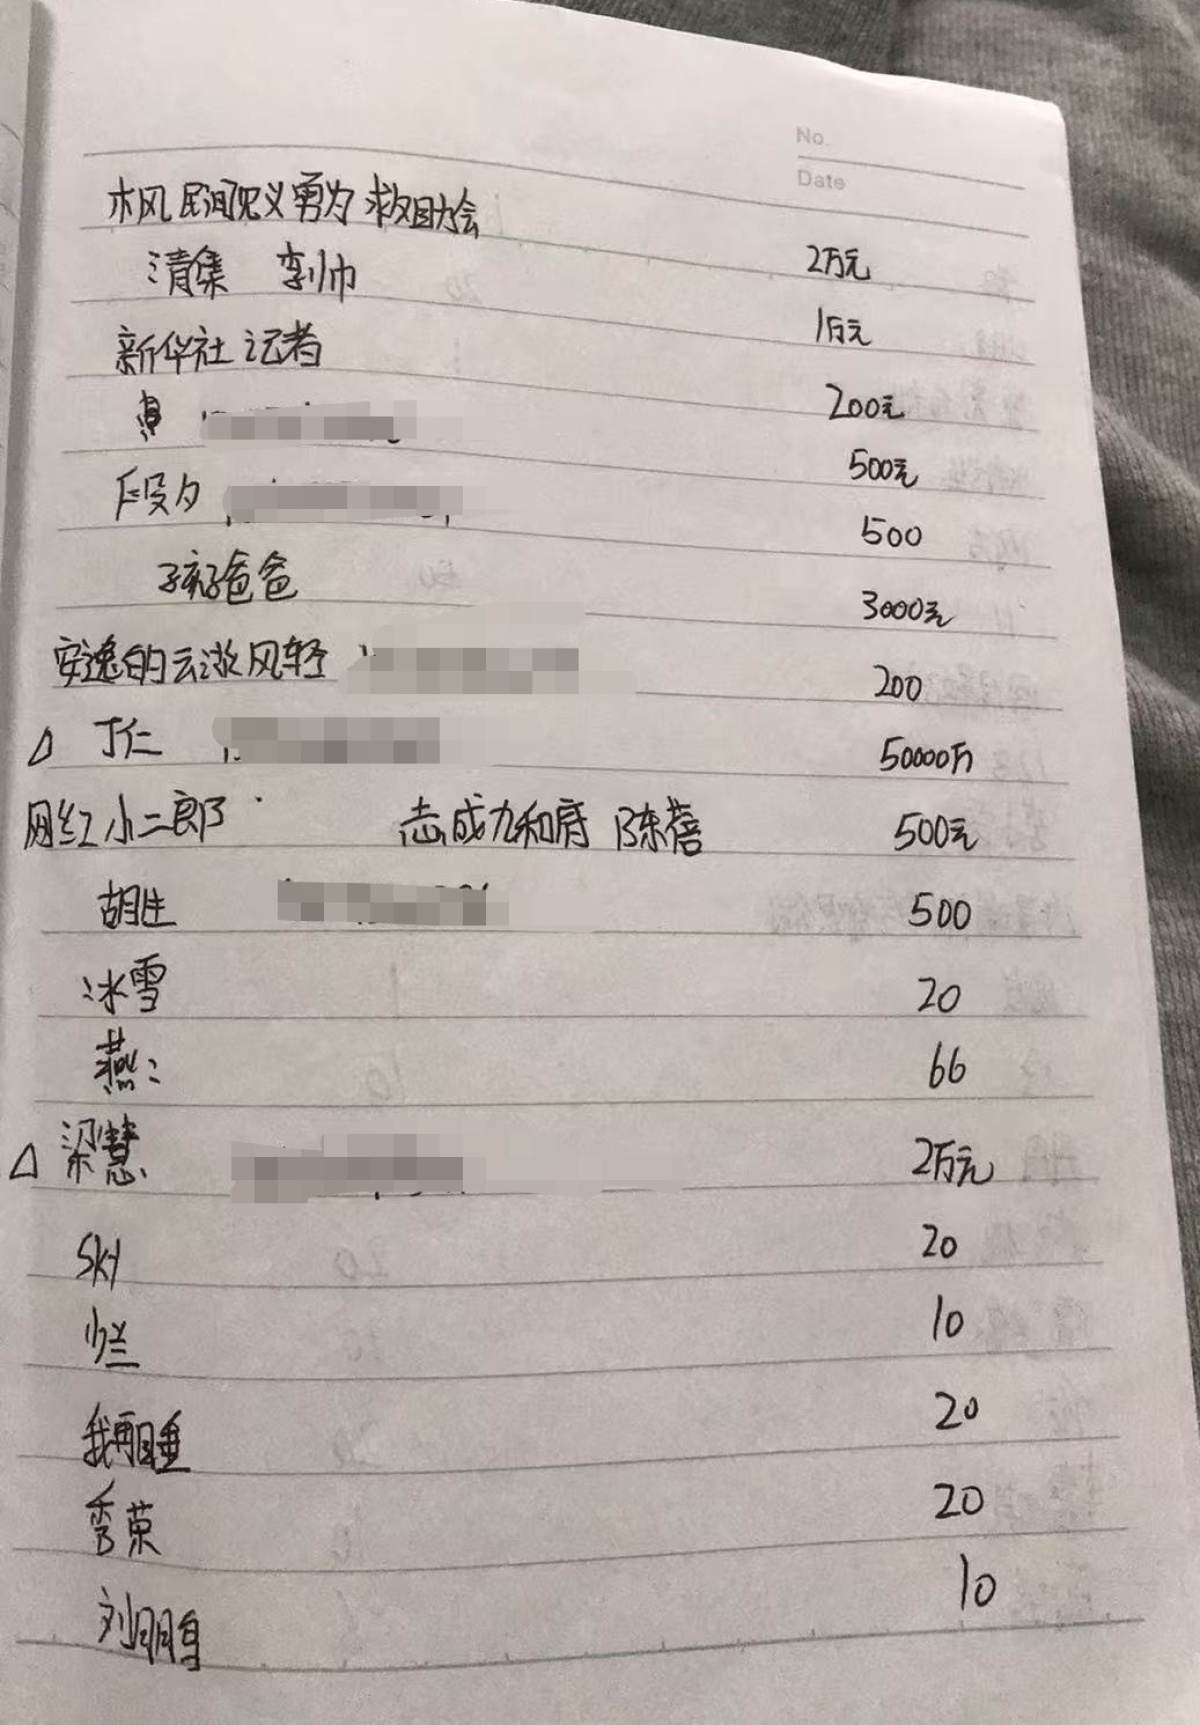 No.
Date
木风民间见义勇为救助会 2万元
清集 李小帅 1万元
新华社记者 200元
500元
段夕 500
孩子爸爸 3000元
安逸的云淡风轻 200
△ 丁仁 50000万
网红小二郎 志成九和府 陈蓓 500元
胡生 500
冰雪 20
燕: 66
△ 梁慧 2万元
Sky 20
烂 10
我再睡 20
秀荣 20
刘朋朋 10